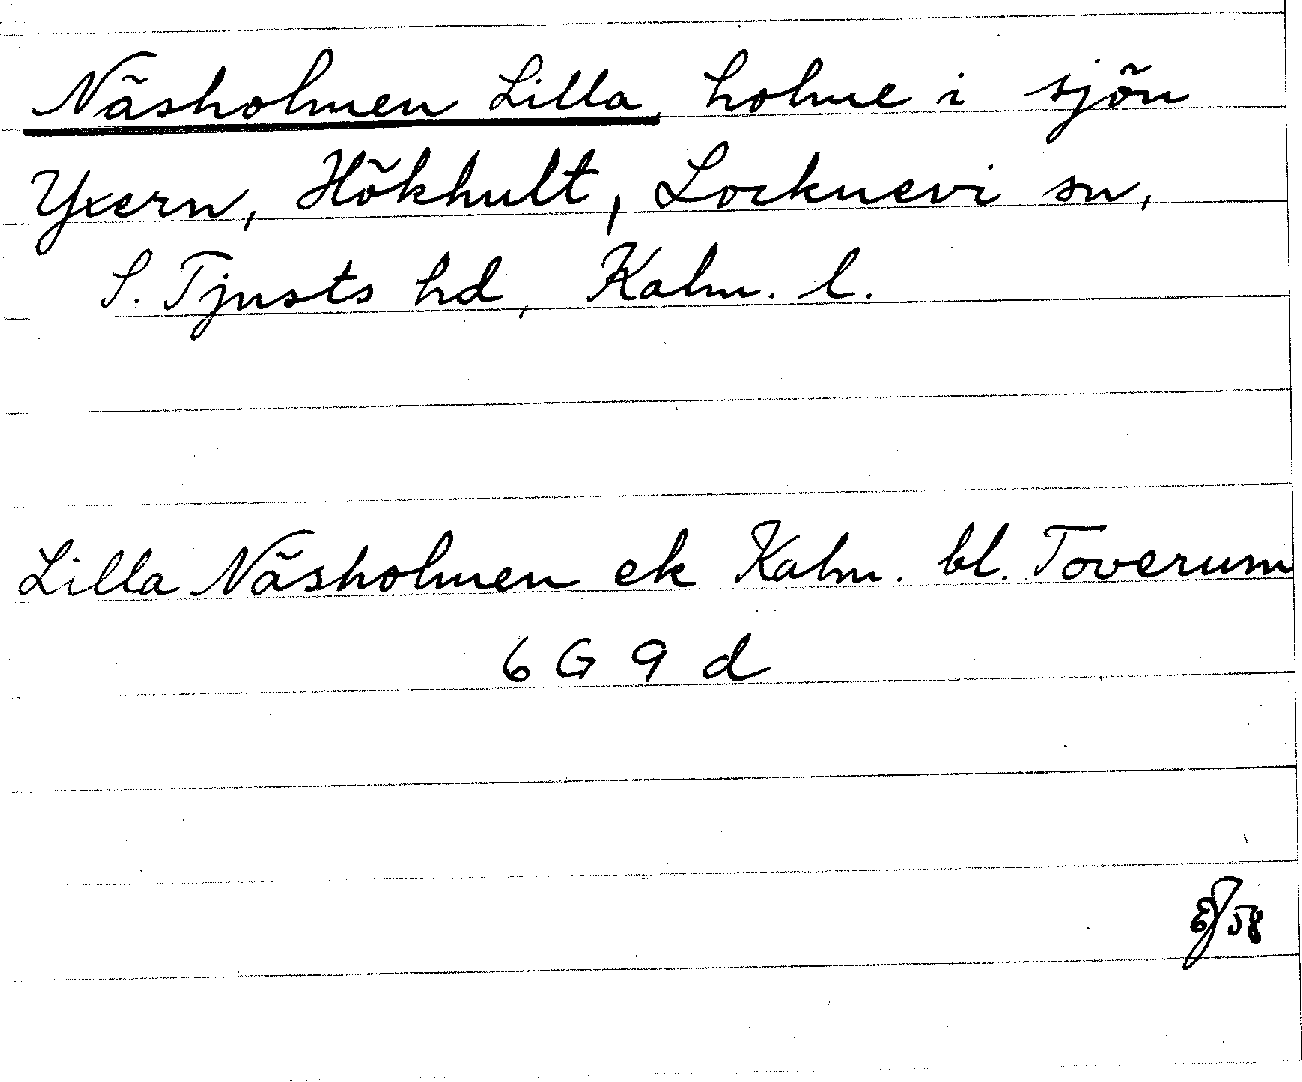 Näsholmen Lilla, holme i sjön
Yxern, Hökhult, Locknevi sn,
S. Tjusts hd, Kalm. l.
Lilla Näsholmen ek Kalm. bl. Toverum
6 G 9 d